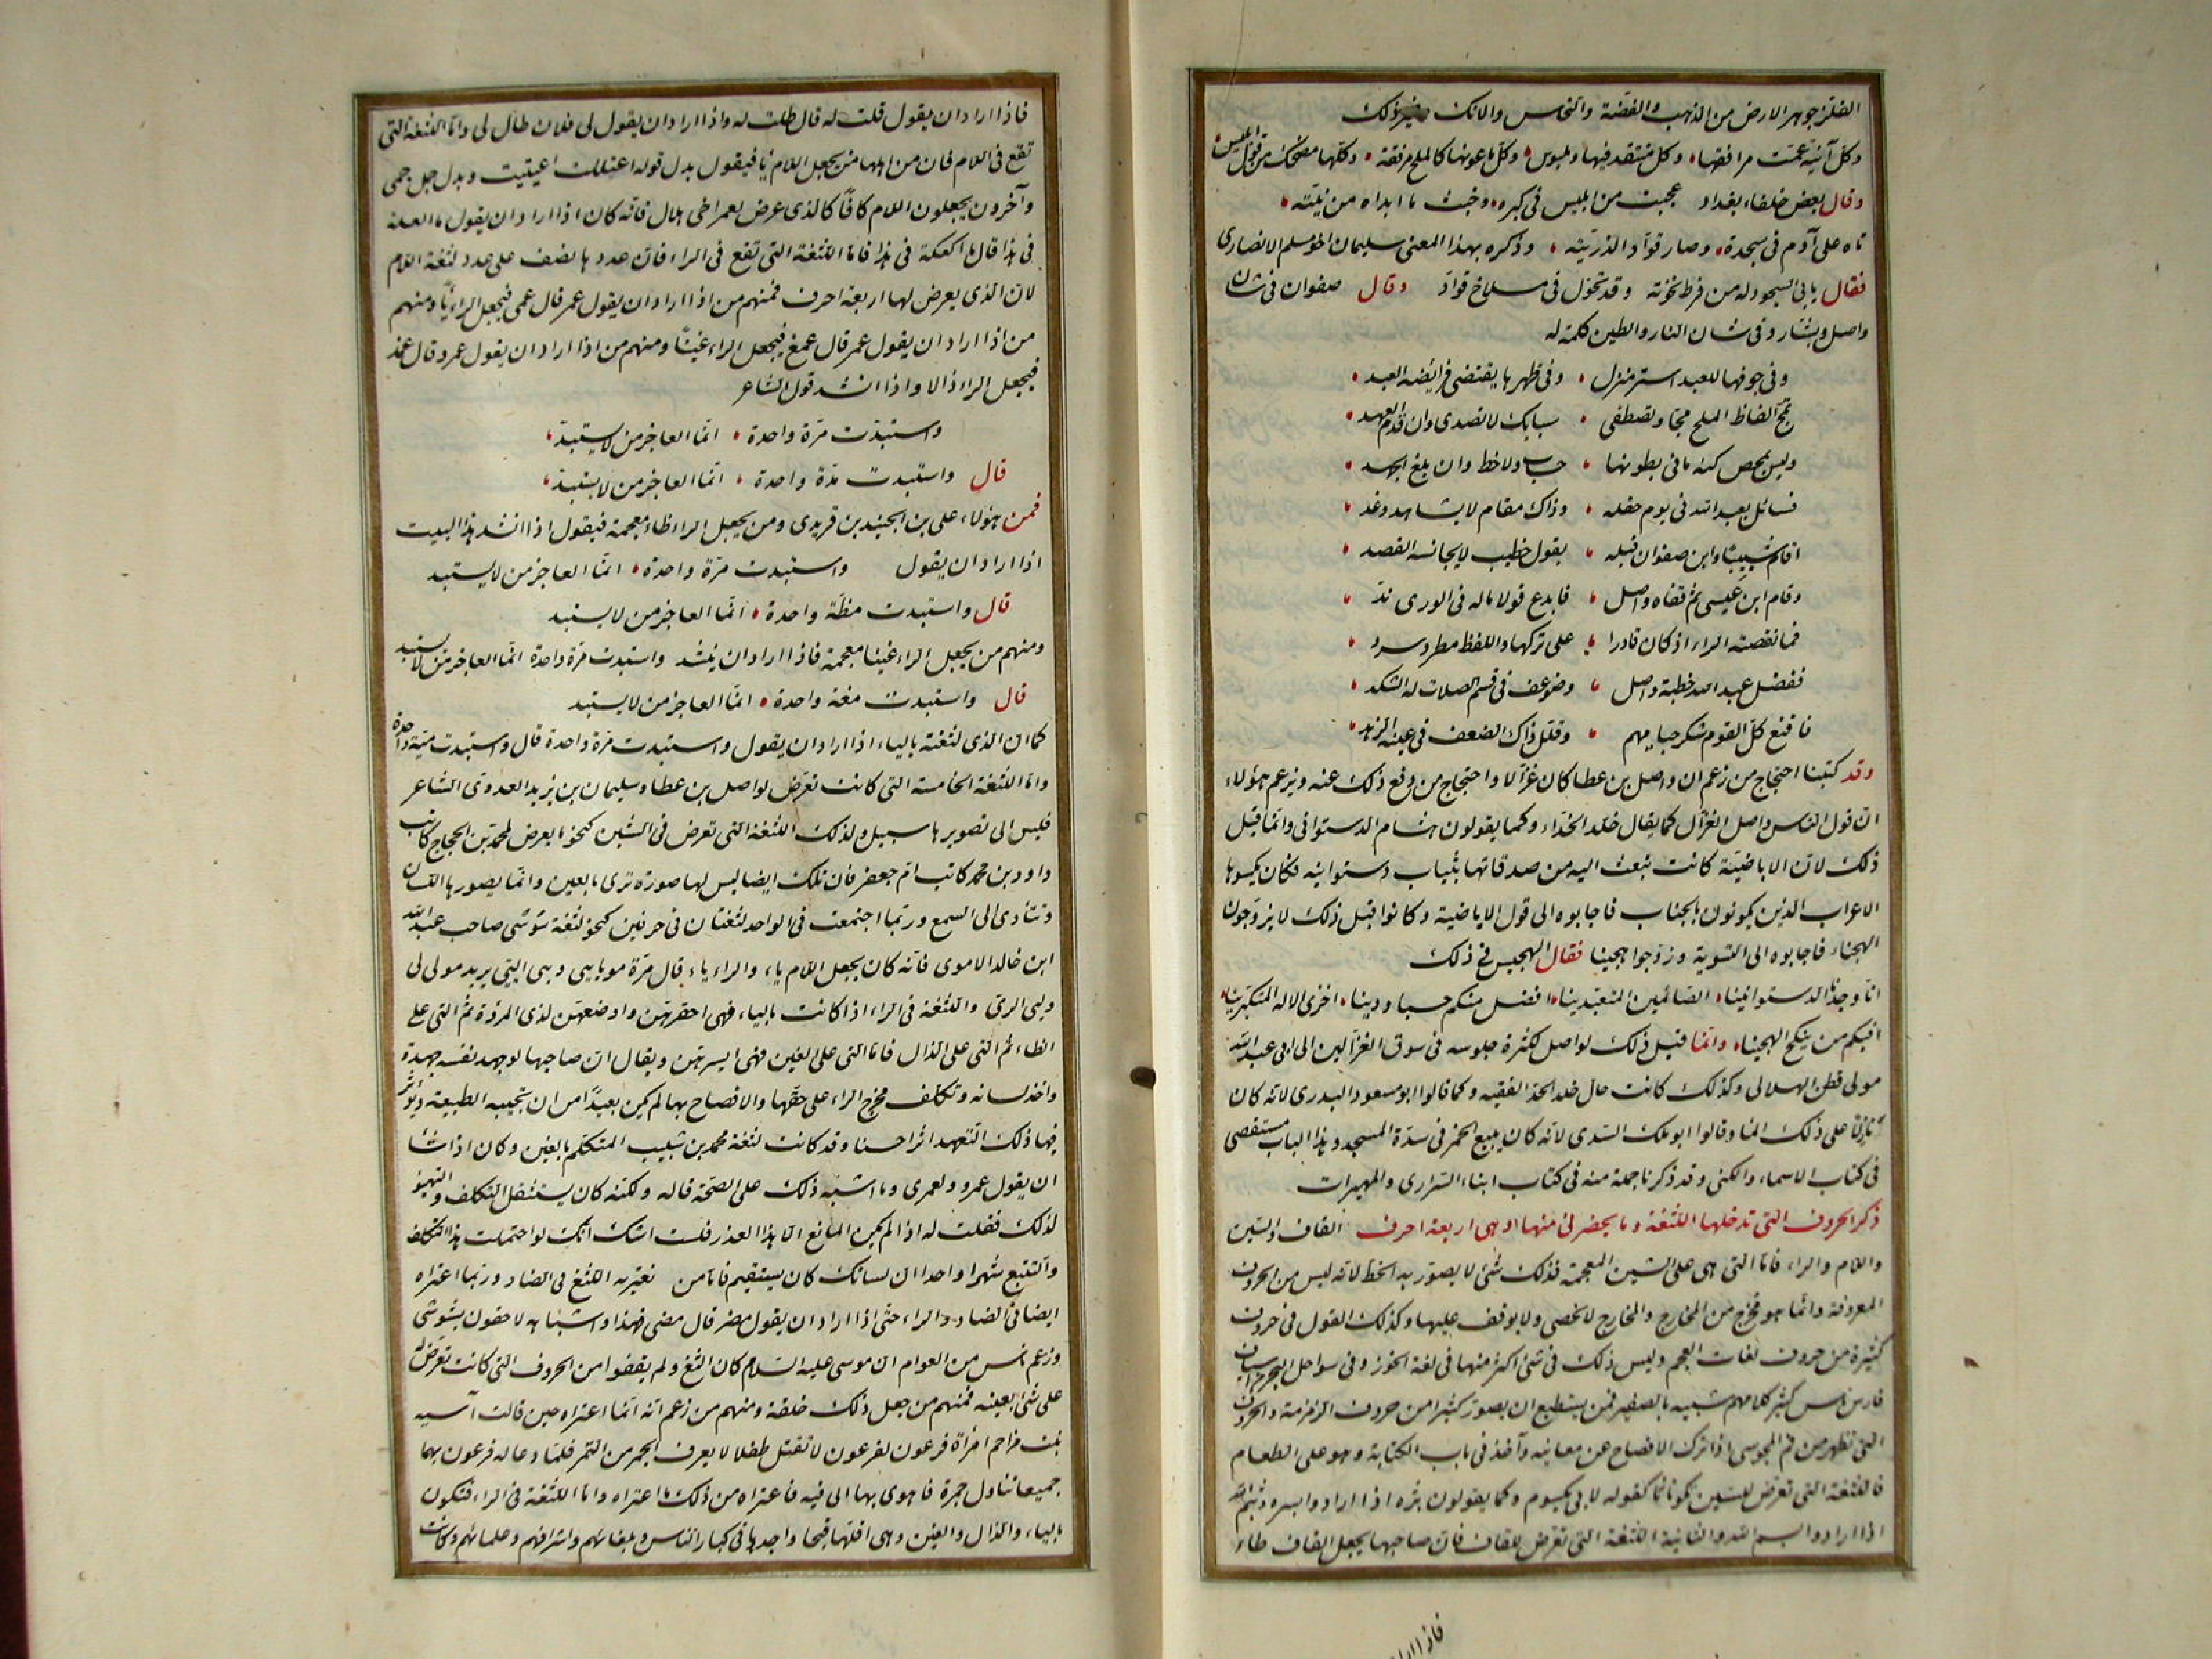 الفلز جوهر الارض من الذهب والفضة والنحاس والآنك وغير ذلك
وكل آنية عمت مرافقها وكل منتقد فيها وملبوس وكل ماعونها كالملح مرفقة وكلها مضحك من قول ابليس
وقال بعض خلفاء بغداد عجبت من ابليس فى كبره وخبث ما ابداه من نيته
تاه على آدم فى سجدة وصار قوّاد الذريته وذكره بهذا المعنى سليمان اخو مسلم الانصارى
فقال يابى السجود له من فرط نخوته وقد تحول فى مسلاخ قوّاد وقال صفوان فى شان
واصل وبشار وفى شان النار والطين كلمة له
وفى جوفها للعبد استر منزل وفى ظهرها يقتضى فرايضه العبد
تمج لفاظ الملح مجا وتصطفى سبايك لا تصدى وان قدم العهد
وليس بمحص كنه ما فى بطونها حساب ولا خط وان بلغ الجهد
فسائل بعبد الله فى يوم حفله وذاك مقام لا يشاهد وغد
اقام شبيبًا وابن صفوان قبله بقول خطيب لا يجانبه القصد
وقام ابن عيسى ثم قفاه واصل فابدع قولا ما له فى الورى ندّ
فما نقصته الراء اذ كان قادرا على تركها واللفظ مطرد سرد
ففضل عبد الله خطبة واصل وضوعف فى قسم الصلات له الشكد
فاقنع كل القوم شكر حبايهم وقلل ذاك الضعف فى عينه الزهد
وقد كتبنا احتجاج من زعم ان واصل بن عطا كان غزّالا واحتجاج من دفع ذلك عنه ويزعم هؤلاء
ان قول الناس واصل الغزّال كما يقال خلد الحذاء وكما يقولون هشام الدستوانى وانما قيل
ذلك لان الاباضيّة كانت تبعث اليه من صدقاتها بثياب دستوانيه فكان يكسوها
الاعراب الذين يكونون بالجناب فاجابوه الى قول الاباضية وكانوا قبل ذلك لا يزوجون
الهجناء فاجابوه الى التسوية وزوجوا هجينا فقال الهجين فى ذلك
انا وجدنا الدستوانينا الصائمين المتعبدينا افضل منكم حسبا ودينا اخزى الاله المتكبرينا
افيكم من ينكح الهجينا وانما قيل ذلك لواصل لكثرة جلوسه فى سوق الغزّالين الى ابى عبد الله
مولى قطن الهلالى وكذلك كانت حال خلد الحذ الفقيه وكما قالوا ابو مسعود البدرى لانه كان
نازلًا على ذلك الما وقالوا ابو ملك السدى لانه كان يبيع الخمر فى سدّة المسجد وهذا الباب مستقصى
فى كتاب الاسماء والكنى وقد ذكرنا جملة منه فى كتاب ابناء السرارى والمهيرات
ذكر الحروف التى تدخلها اللثغة وما يحضرنى منها وهى اربعة احرف القاف والسين
واللام والراء فاما التى هى على الشين المعجمة فذلك شئ لا يصوره الخط لانه ليس من الحروف
المعروفة وانما هو مخرج من المخارج والمخارج لا تحصى ولا يوقف عليها وكذلك القول فى حروف
كثيرة من حروف لغات العجم وليس ذلك فى شئ اكثر منها فى لغة الخوز وفى سواحل البحر من اسياف
فارس ناس كثير كلامهم شبيه بالصفير فمن يستطيع ان يصور كثيرا من حروف الزمزمة والحروف
التى تظهر من فم المجوسى اذا ترك الافصاح عن معانيه وآخذ فى باب الكناية وهو على الطعام
فاللثغة التى تعرض للسين تكون ثا كقوله لابى يكسوم وكما يقولون بثره اذا ارادوا بسره وبثم الله
اذا ارادوا بسم الله والثانية اللثغة التى تعرض للقاف فان صاحبها يجعل القاف طاء
فاذا اراد
فاذا اراد ان يقول قلت له قال طلت له واذا اراد ان يقول قال لى فلان طال لى واما اللثغة التى
تقع فى اللام فان من اهلها من يجعل اللام يًا فيقول بدل قوله اعتللت اعتييت وبدل جمل جمى
وآخرون يجعلون اللام كافًا كالذى عرض لعمر اخى هلال فانه كان اذا اراد ان يقول ما العلة
فى هذا قال ما اكعكة فى هذا فاما اللثغة التى تقع فى الراء فان عددها يضعف على عدد لثغة اللام
لان الذى يعرض لها اربعة احرف فمنهم من اذا اراد ان يقول عمر قال عمى فيجعل الراء يًا ومنهم
من اذا اراد ان يقول عمر قال عمغ فيجعل الراء غينًا ومنهم من اذا اراد ان يقول عمرو قال عمذ
فيجعل الراء ذالا واذا انشد قول الشاعر
واستبدّت مرّة واحدة انما العاجز من لا يستبدّ
قال واستبدت مذّة واحدة انما العاجز من لا يستبدّ
فمن هؤلاء على بن الجنيد بن فريدى ومن يجعل الراء ظاء معجمة فيقول اذا انشد هذا البيت
اذا اراد ان يقول واستبدت مرّة واحدة انما العاجز من لا يستبد
قال واستبدت مظّة واحدة انما العاجز من لا يستبد
ومنهم من يجعل الراء غينا معجمة فاذا اراد ان ينشد واستبدت مرّة واحدة انما العاجز من لا يستبد
قال واستبدت مغة واحدة انما العاجز من لا يستبد
كما ان الذى لثغته بالياء اذا اراد ان يقول واستبدت مرّة واحدة قال واستبدت ميّة واحدة
واما اللثغة الخامسة التى كانت تعرض لواصل بن عطا وسليمان بن يزيد العدوى الشاعر
فليس الى تصويرها سبيل وكذلك اللثغة التى تعرض فى الشين كنحو ما يعرض لمحمد بن الحجاج كاتب
داود بن محمد كاتب ام جعفر فان تلك ايضا ليس لها صورة ترى بالعين وانما يصورها اللسان
وتتأدى الى السمع وربما اجتمعت فى الواحد لثغتان فى حرفين كنحو لثغة شوشى صاحب عبد الله
ابن خالد الاموى فانه كان يجعل اللام ياء والراء ياء قال مرّة موياى وبى ايّى يريد مولاى
ولى الرىّ واللثغة فى الراء اذا كانت بالياء فهى احقرهن واوضعهن لذى المروة ثم التى على
الظاء ثم التى على الذال فاما التى على الغين فهى ايسرهن ويقال ان صاحبها لو جهد نفسه جهدة
واخذ لسانه وتكلف مخرج الراء على حقها والافصاح بها لم يكن بعيدًا من ان تجيبه الطبيعة ويؤثر
فيها ذلك التعهد اثرا حسنا وقد كانت لثغة محمد بن شبيب المتكلم بالغين وكان اذا شا
ان يقول عمرو ولعمرى وما اشبه ذلك على الصحة قاله ولكنه كان يستثقل التكلف والتهيؤ
لذلك فقلت له اذا لم يكن المانع الا هذا العذر فلست اشك انك لو احتملت هذا التكلف
والتتبع شهرا واحدا ان لسانك كان يستقيم فاما من تعتريه اللثغ فى الضاد وربما اعتراه
ايضا فى الضاد والراء حتى اذا اراد ان يقول مضر قال مضى فهذا واشباهه لاحقون بشوشى
وزعم ناس من العوام ان موسى عليه السلام كان الثغ ولم يقفوا من الحروف التى كانت تعرض له
على شئ بعينه فمنهم من جعل ذلك خلقة ومنهم من زعم انه انما اعتراه حين قالت آسيه
بنت مزاحم امرأة فرعون لفرعون لا تقتل طفلا لا يعرف الجمر من التمر فلما دعا له فرعون بهما
جميعا تناول جمرة فاهوى بها الى فيه فاعتراه من ذلك ما اعتراه واما اللثغة فى الراء فتكون
بالياء والذال والغين وهى اقلها قبحا واوجدها فى كبار الناس وبلغائهم واشرافهم وعلمائهم وكانت